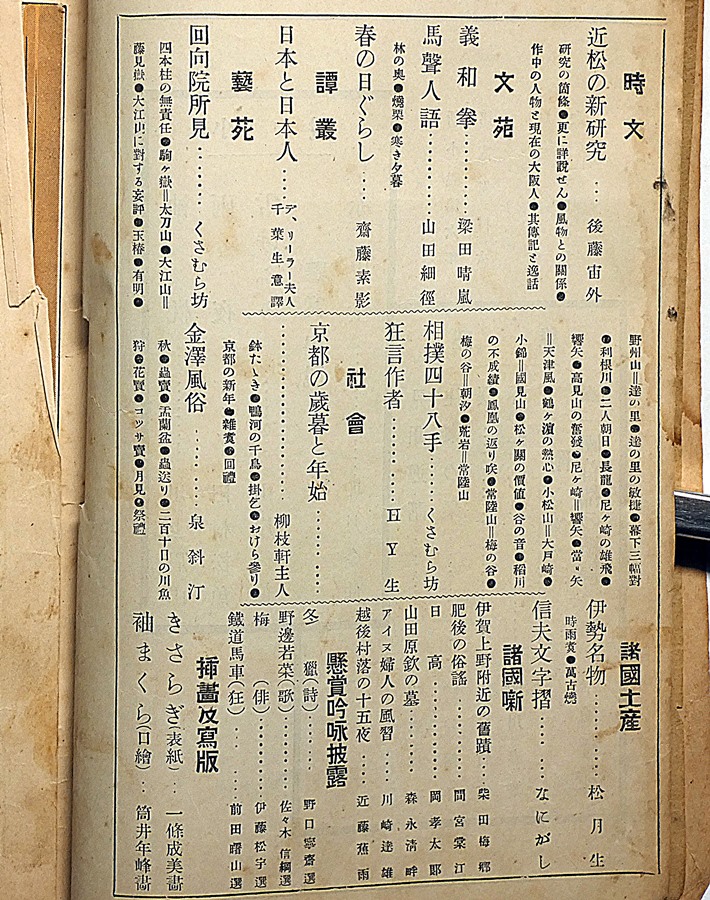 時文
近松の新研究‥‥後藤宙外
研究の箇條●更に詳說せん●風物との關係●
作中の人物と現在の大阪人●其傳記と逸話
文苑
義和拳‥‥‥‥‥梁田晴嵐
馬聲人語‥‥‥‥山田細徑
林の奥●燒栗●寒き夕暮
春の日ぐらし‥‥齋藤素影
譚叢
日本と日本人‥‥デ、リーラー夫人 千葉生意譯
藝苑
回向院所見‥‥‥‥くさむら坊
四本柱の無責任●駒ヶ嶽‖太刀山●大江山‖
藤見嶽●大江山に對する妄評●玉椿●有明●
野州山‖逹の里●逹の里の敏捷●幕下三幅對
●利根川●二人朝日●長龍●尼ヶ崎の雄飛●
響矢●高見山の奮發●尼ヶ崎‖響矢●當り矢
‖天津風●鶴ヶ濱の熱心●小松山‖大戸崎●
小錦‖國見山●松ヶ關の價値●谷の音●稻川
の不成績●鳳凰の返り咲●常陸山‖梅の谷●
梅の谷‖朝汐●荒岩‖常陸山
相撲四十八手‥‥くさむら坊
狂言作者‥‥‥‥‥H Y 生
社會
京都の歲暮と年始‥‥‥‥
‥‥‥‥‥‥柳枝軒主人
鉢たゝき●鴨河の千鳥●掛乞●おけら參り●
京都の新年●雜煮●回禮
金澤風俗‥‥‥‥泉斜汀
秋●蟲賣●盂蘭盆●蟲送り●二百十日の川魚
狩●花賣●コッサ賣●月見●祭禮
諸國土產
伊勢名物‥‥‥‥松月生
時雨煮●萬古燒
信夫文字摺‥‥‥なにがし
諸國噺
伊賀上野附近の舊蹟‥‥柴田梅鄕
肥後の俗謠‥‥‥‥間宮棠汀
日高‥‥‥‥‥‥岡孝太郞
山田原欽の墓‥‥‥森永淸畔
アイヌ婦人の風習‥‥川崎達雄
越後村落の十五夜‥‥近藤蕉雨
懸賞吟咏披露
冬獵(詩)‥‥‥‥野口寧齋選
野邊若菜(歌)‥‥‥佐々木信綱選
梅(俳)‥‥‥‥‥伊藤松宇選
鐵道馬車(狂)‥‥‥前田曙山選
挿畵及寫版
きさらぎ(表紙)‥‥一條成美畵
袖まくら(口繪)‥‥筒井年峰畵